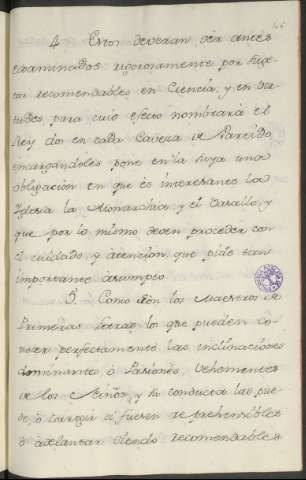 4. Estos deveran ser antes
examinados rigorosamente por suge-
tos recomendables en Ciencia, y en vir-
tudes, para cuio efecto nombrará el
Rey dos en cada Caveza de Pareido,
encargandoles pone en la hoya una
obligacion en que es interesante la
Iglesia la Monarchia, y el Vasallo, y
que por lo mismo deven proceder con
el cuidado, y atencion que pide tan
importante asumpto
5. Como son los Maestros de
Primeras Letras, los que pueden co-
nocer perfectamente las inclinaciones
dominantes ò Pasiones, vehementes
de los Niños, y su conducta las pue-
de, ò corregir si fuesen reprehensibles
ò adelantar siendo recomendables